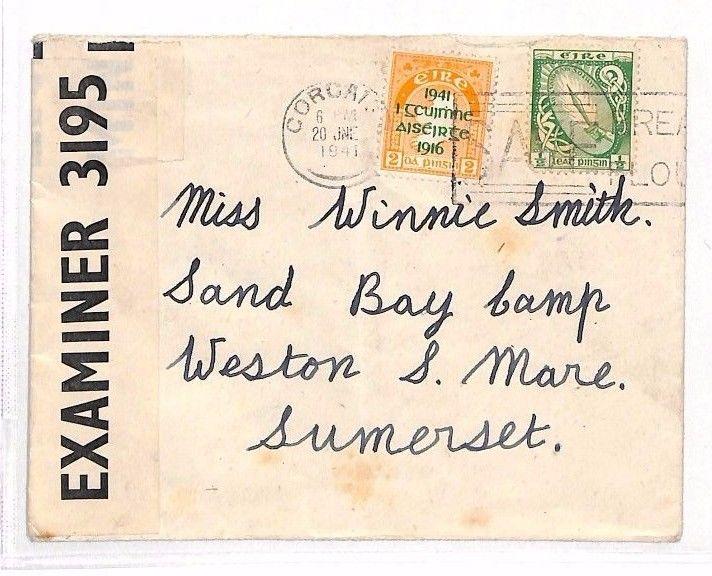 EXAMINER 3195
CORCAIGH
6 PM
20 JNE
1941
EIRE
1941
I gCUIMHNE
AISÉIRGE
1916
2 DÁ PINGIN 2
EIRE
½ LEAT PINGIN ½
Miss Winnie Smith.
Sand Bay Camp
Weston S. Mare.
Sumerset.